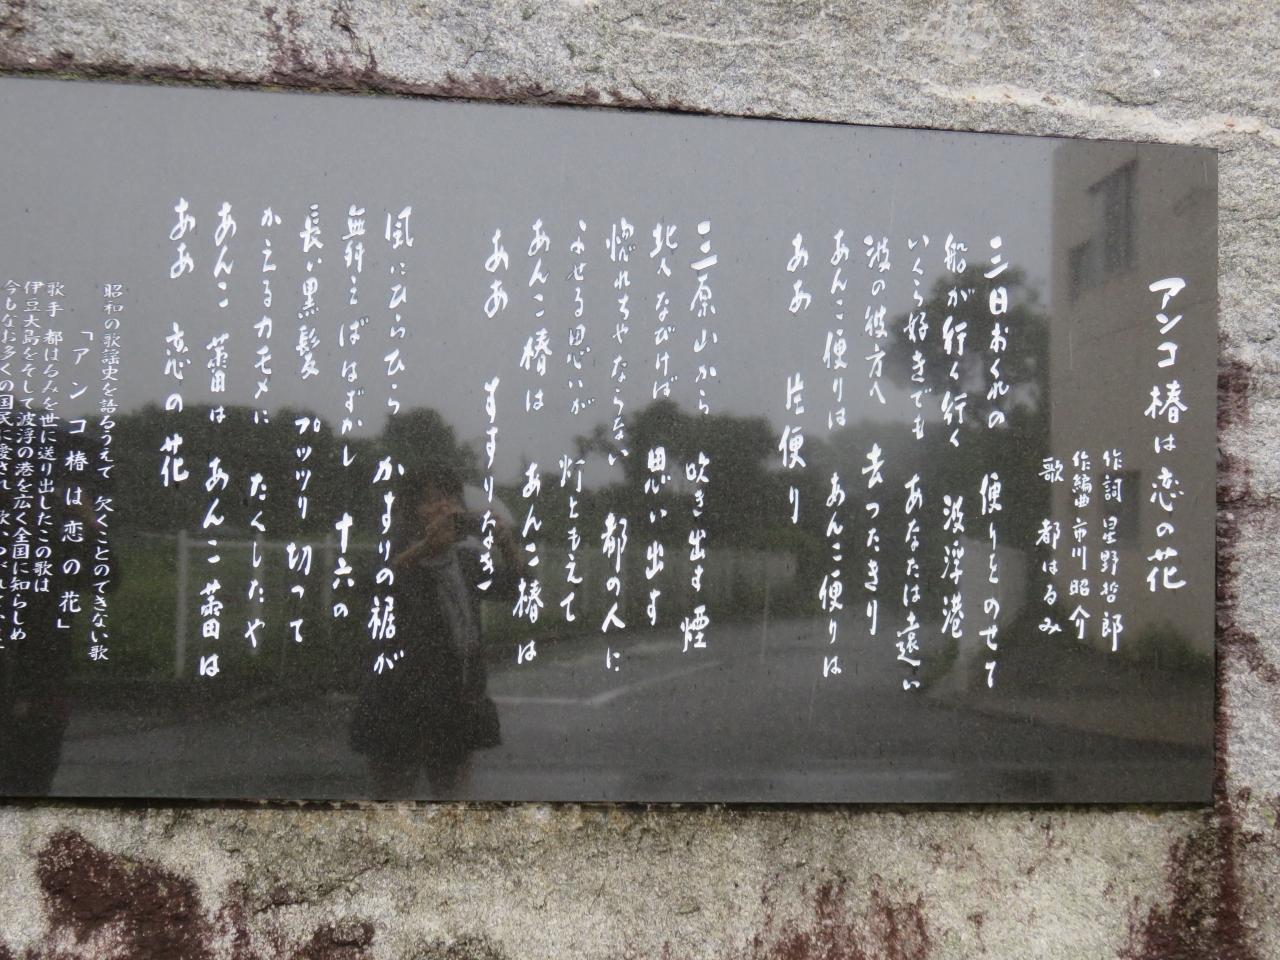 アンコ椿は恋の花
作詞 星野哲郎
作編曲 市川昭介
歌 都はるみ
三日おくれの 便りをのせて
船が行く行く 波浮港
いくら好きでも あなたは遠い
波の彼方へ 去つたきり
あんこ便りは あんこ便りは
ああ 片便り
三原山から 吹き出す煙
北へなびけば 思い出す
惚れちやならない 都の人に
よせる思いが 灯ともえて
あんこ椿は あんこ椿は
ああ すすりなき
風にひらひら かすりの裾が
無粋とばはずかし 十六の
長い黒髪 プッツリ切つて
かえるカモメに たくしたや
あんこ蕾は あんこ蕾は
ああ 恋の花
昭和の歌謡史を語るうえで 欠くことのできない歌
「アンコ椿は恋の花」
歌手 都はるみを世に送り出したこの歌は
伊豆大島をそして波浮の港を広く全国に知らしめ
今もなお多くの国民に愛され